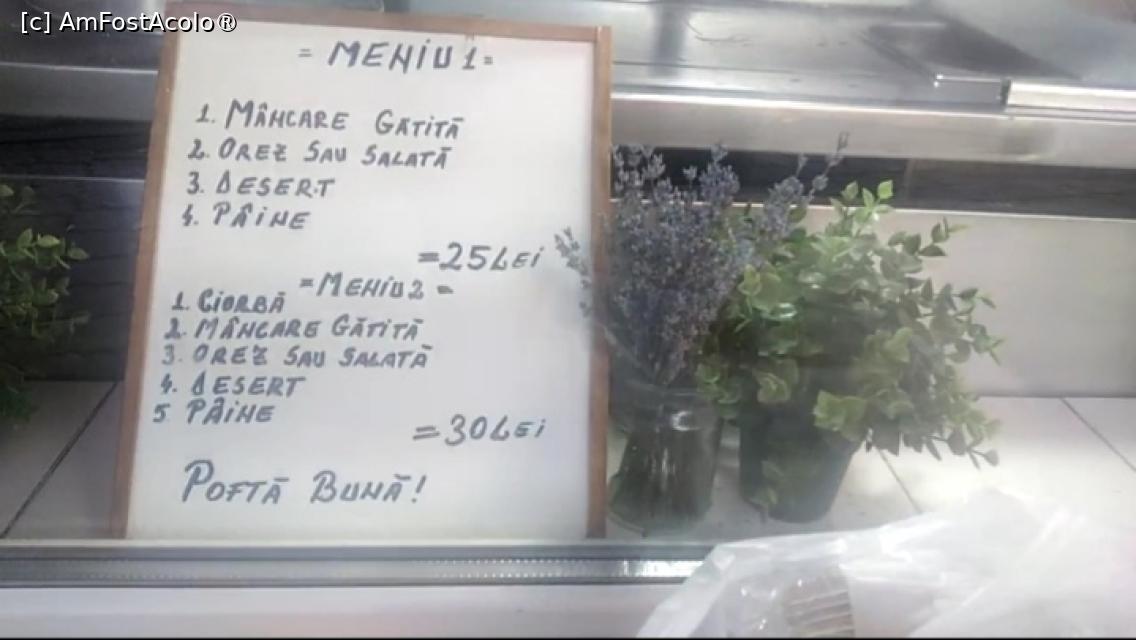 [c] AmFostAcolo®
= MENIU 1 =
1. MÂNCARE GĂTITĂ
2. OREZ SAU SALATĂ
3. DESERT
4. PÂINE
= 25 LEI
= MENIU 2 =
1. CIORBĂ
2. MÂNCARE GĂTITĂ
3. OREZ SAU SALATĂ
4. DESERT
5 PÂINE
= 30 LEI
POFTĂ BUNĂ!